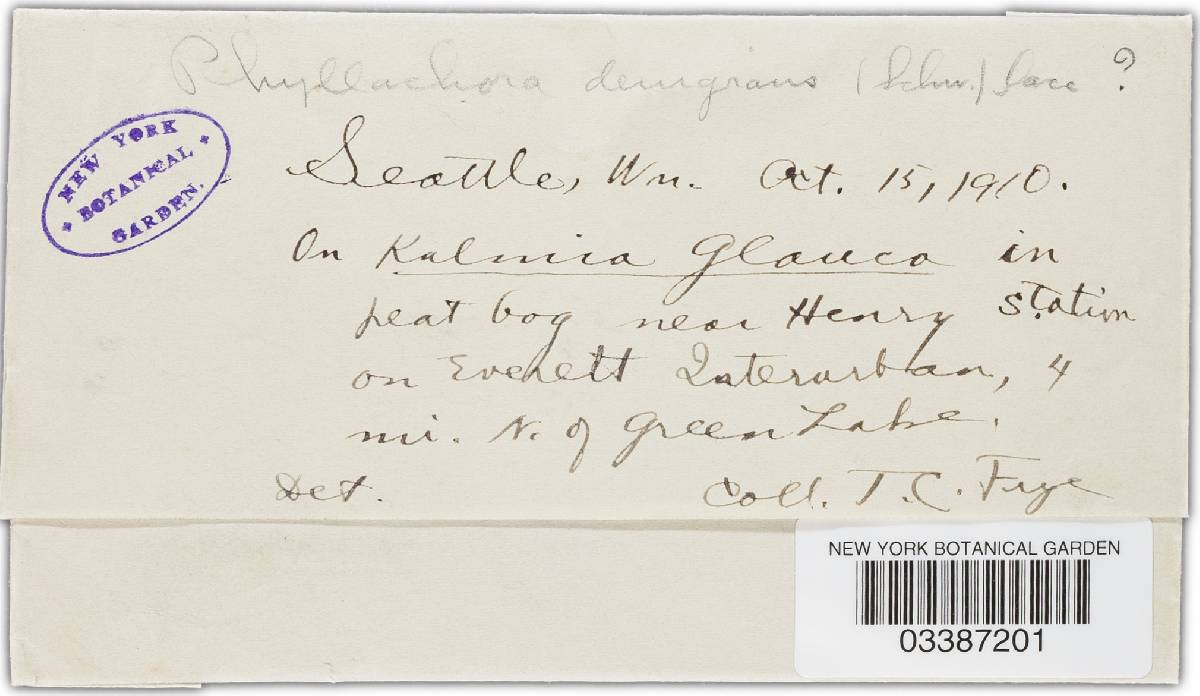 Phyllachora denigrans (Schw.) Sacc ?
NEW YORK
BOTANICAL
GARDEN.
Seattle, Wn. Oct. 15, 1910.
On Kalmia Glauca in
peat bog near Henry Station
on Everett Interurban, 4
mi. N. of Green Lake.
Det. Coll. T. C. Frye
NEW YORK BOTANICAL GARDEN
03387201